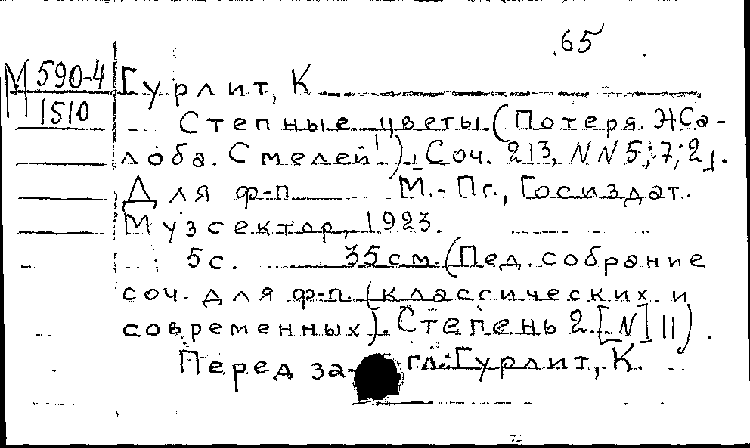 65
М 590-4
1510
Гурлит, К
Степные цветы. (Потеря. Жа-
лоба. Смелей!). Соч. 213, NN 5; 7; 2.
Для ф-п М.-Пг., Госиздат.
Музсектор, 1923.
5с. 35см. (Пед. собрание
соч. для ф-п. (классических и
современных). Степень 2. [N] 11).
Перед за- гл.: Гурлит, К.